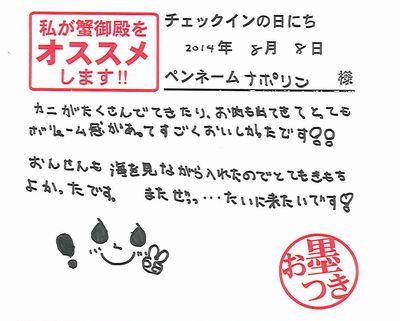 私が蟹御殿を
オススメ
します!!
チェックインの日にち
2014年 8月 8日
ペンネーム ナポリン 様
カニがたくさんでてきたり、お肉も出てきてとっても
ボリューム感があってすごくおいしかったです!!
おんせんも海を見ながら入れたのでとてもきもち
よかったです。 またぜっっ…たいに来たいです♡
墨
お つき